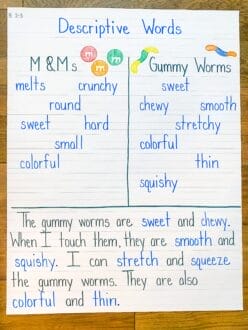 Descriptive Words
M & Ms
m
m
m
melts crunchy
round
sweet hard
small
colorful
Gummy Worms
sweet
chewy smooth
stretchy
colorful
thin
squishy
The gummy worms are sweet and chewy.
When I touch them, they are smooth and
squishy. I can stretch and squeeze
the gummy worms. They are also
colorful and thin.